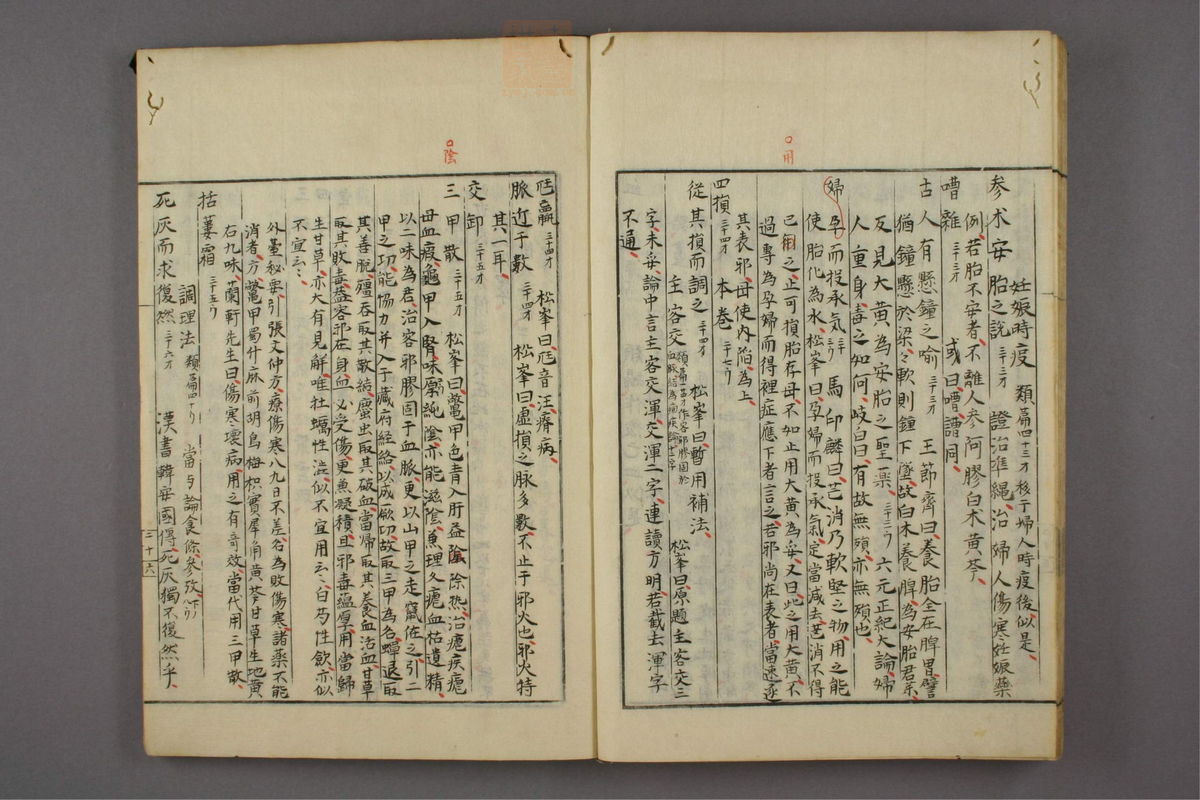 妊娠時疫　類篇四十三才移于婦人時疫後似是
参朮安胎之説三十三才　證治準繩治婦人傷寒妊娠藥
例若胎不安者不離人參阿膠白朮黃芩
嘈雜三十三才　或曰嘈譜同
古人有懸鐘之喻三十三才　王節齋曰養胎全在脾胃譬
猶鐘懸於梁々軟則鐘下墜故白朮養脾為安胎君藥
反見大黃為安胎之聖藥三十三ウ　六元正紀大論婦
人重身毒之如何岐曰有故無殞亦無殞也
婦孕而投承気三十三ウ　馬印麟曰芒消乃軟堅之物用之能
使胎化為水松峯曰孕婦而投承氣定當減去芒消不得
已用之止可損胎存母不知止用大黃為妥又曰此之用大黃不
過專為孕婦而得裡症應下者言之若邪尚在表者當速逐
其表邪毋使內陷為上
四損三十四才　本巻二十七ウ
從其損而調之三十四才　松峯曰暫用補法
主客交類篇五十一才作客邪膠固於血脉結為痼疾論廿二字　松峯曰原題主客交三
字未妥論中言主客交渾交渾二字連讀方明若截去渾字
不通
口用
尫羸三十四才　松峯曰尫音汪瘠病
脈近于數三十四才　松峯曰虛損之脉多數不止于邪火也邪火特
其一耳
交卸三十五才
三甲散三十五才　松峯曰鱉甲色青入肝益陰除热治瘧疾瘧
母血瘕龜甲入腎味厚純陰亦能滋陰兼理久瘧血枯遺精
以二味為君治客邪膠固于血脈更以山甲之走竄佐之引二
甲之功能協力并入于藏府經絡以成厥功故取三甲為名蟬退取
其善脫殭吞取其散結䗪虫取其破血當歸取其養血活血甘草
取其敗毒益客邪在身血必受傷更兼凝積且邪毒蘊厚用當歸
生甘草亦大有見解唯牡蠣性澁似不宜用云々白芍性歛亦似
不宜云々
外臺秘要引張文仲方療傷寒八九日不差名為敗傷寒諸藥不能
消者方鱉甲蜀升麻前胡烏梅枳實犀角黃芩甘草生地黃
右九味蘭軒先生曰傷寒壞病用之有奇效當代用三甲散
括蔞霜三十五ウ
調理法類篇四十ウ　當与論食條參攷八下ウ
死灰而求復然三十六才　漢書韓安國傳死灰獨不復然乎
口陰
三十六